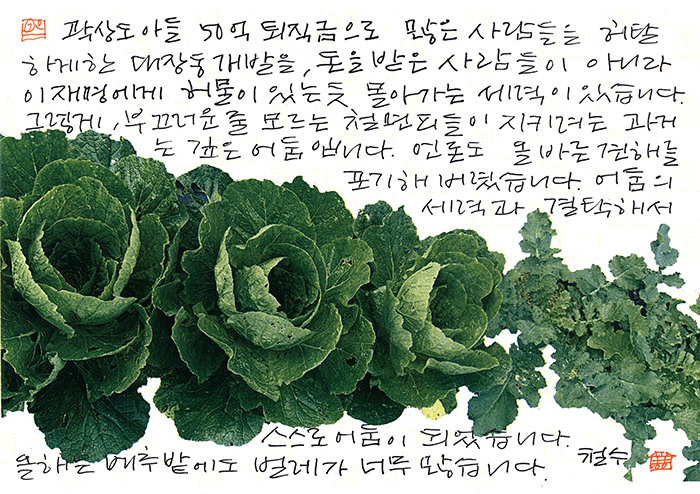 곽상도 아들 50억 퇴직금으로 많은 사람들을 허탈
하게한 대장동개발을, 돈을 받은 사람들이 아니라
이재명에게 허물이 있는듯 몰아가는 세력이 있습니다.
그렇게, 부끄러운줄 모르는 철면피들이 지키려는 과거
는 깊은 어둠입니다. 언론도 올바른견해를
포기해 버렸습니다. 어둠의
세력과 결탁해서
스스로 어둠이 되었습니다.
올해는 배추밭에도 벌레가 너무 많습니다. 철수